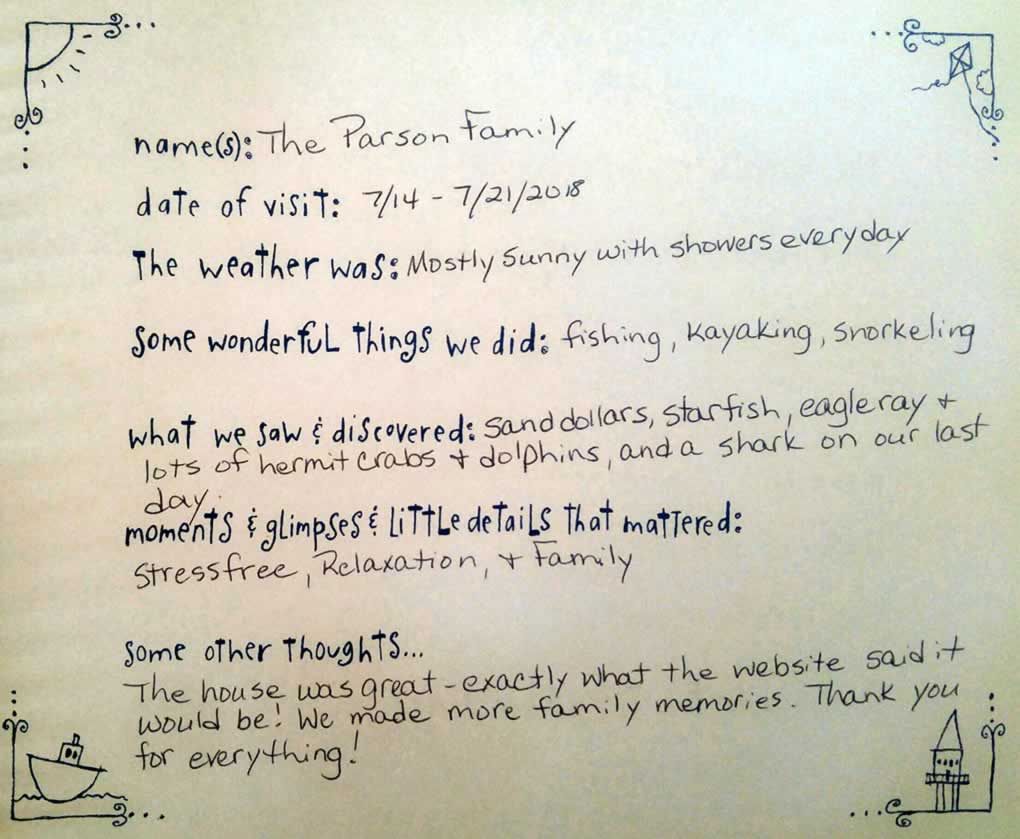 name(s): The Parson Family
date of visit: 7/14 - 7/21/2018
The weather was: Mostly Sunny with showers everyday
some wonderful things we did: fishing, kayaking, snorkeling
what we saw & discovered: sand dollars, starfish, eagle ray +
lots of hermit crabs + dolphins, and a shark on our last
day.
moments & glimpses & little details that mattered:
Stress free, Relaxation, + Family
some other thoughts...
The house was great - exactly what the website said it
would be! We made more family memories. Thank you
for everything!